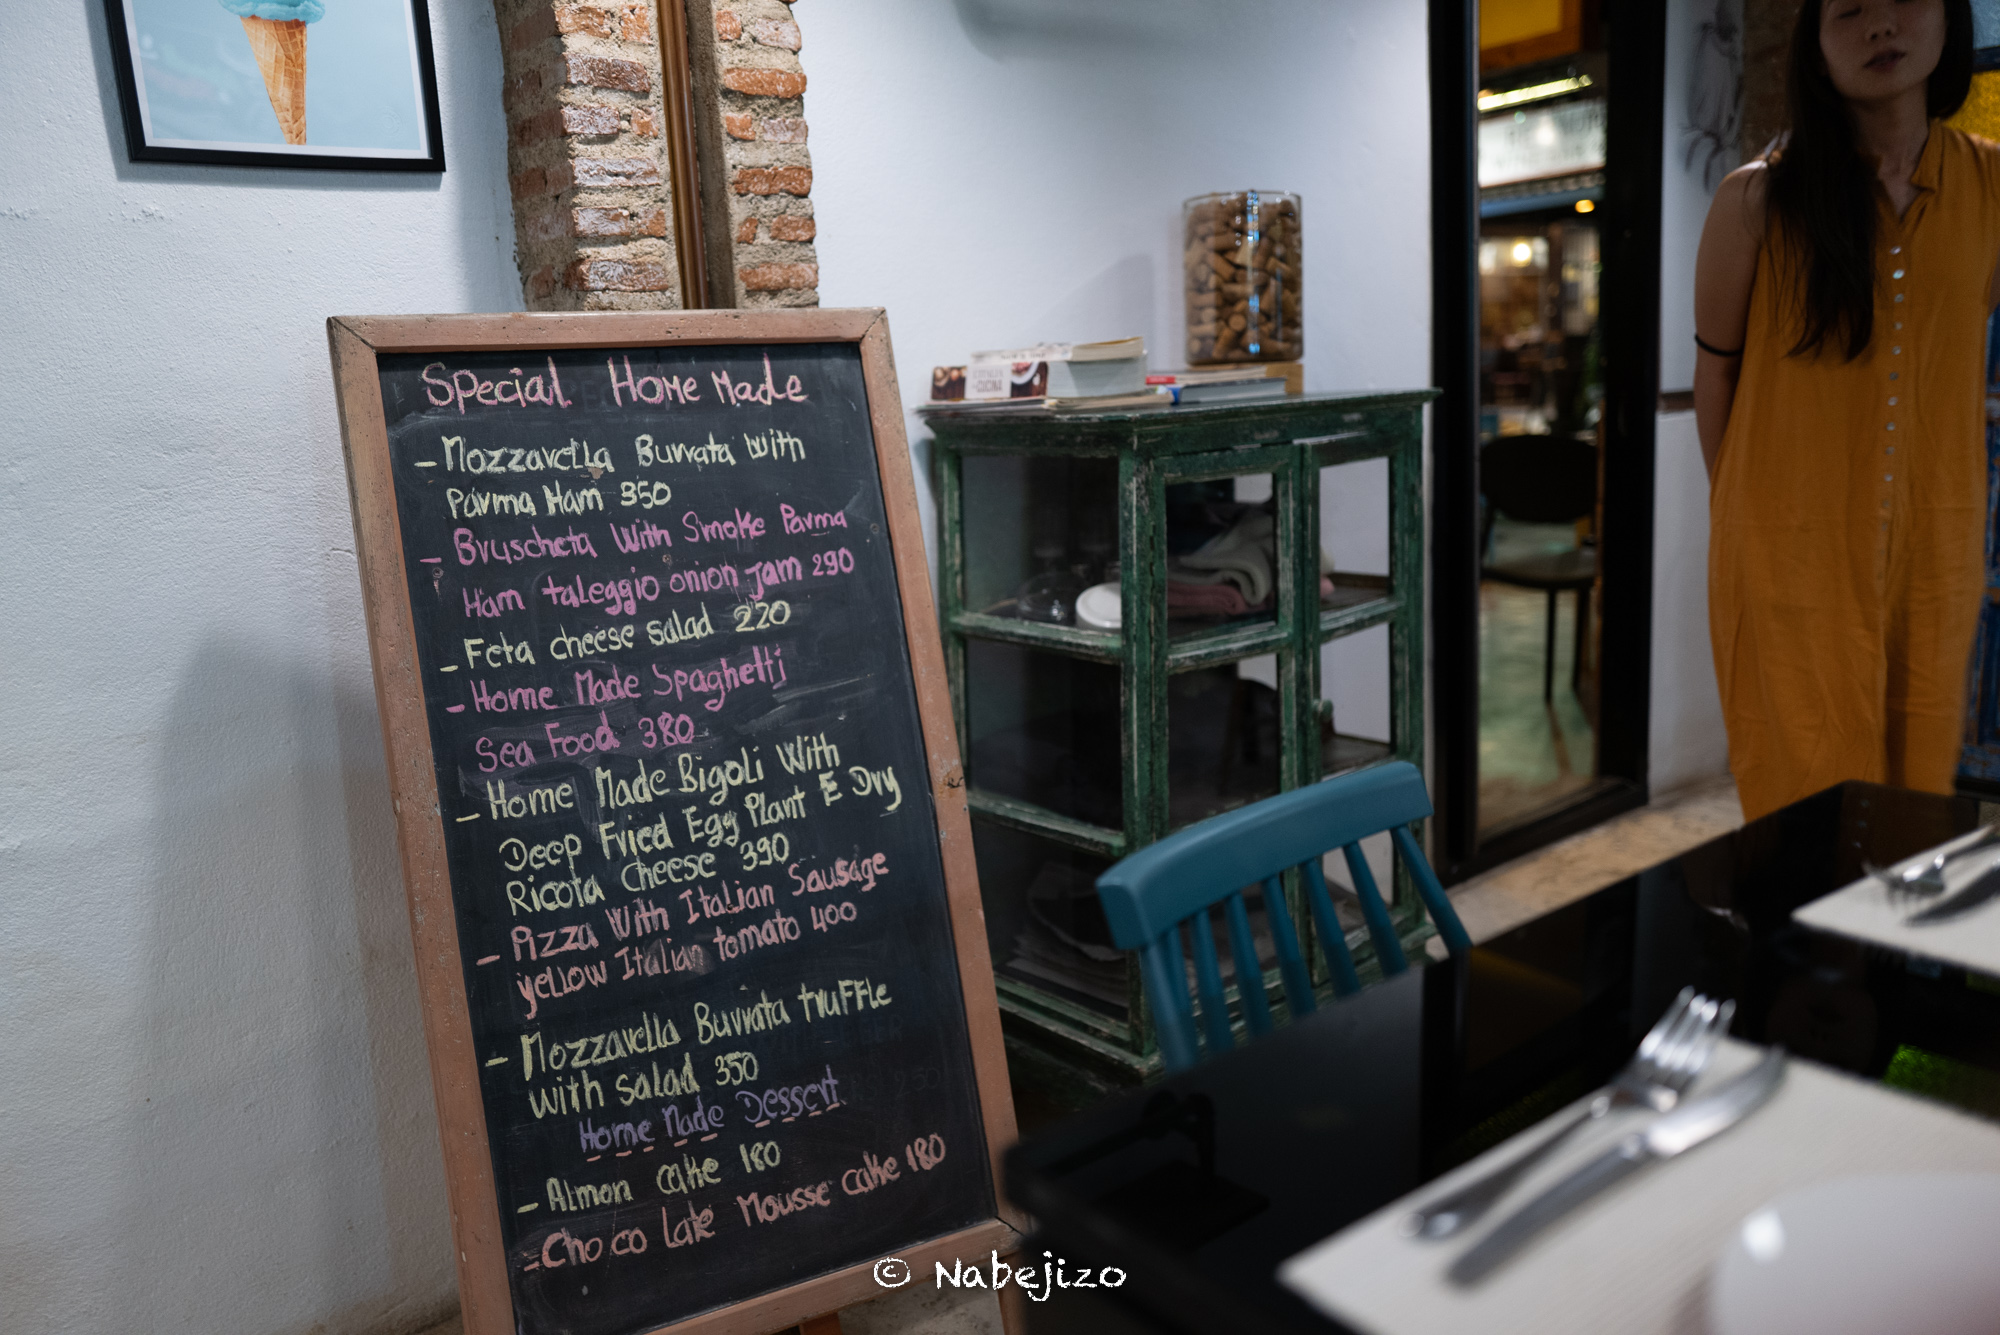 Special Home Made
- Mozzarella Burrata with
Parma Ham 350
- Bruscheta With Smoke Parma
Ham taleggio onion jam 290
- Feta cheese salad 220
- Home Made Spaghetti
Sea Food 380
- Home Made Bigoli With
Deep Fried Egg Plant E Dry
Ricota cheese 390
- Pizza With Italian Sausage
yellow Italian tomato 400
- Mozzarella Burrata truffle
with salad 350
Home Made Dessert
- Almon cake 180
- Choco late Mousse cake 180
CUCINA
© Nabejizo